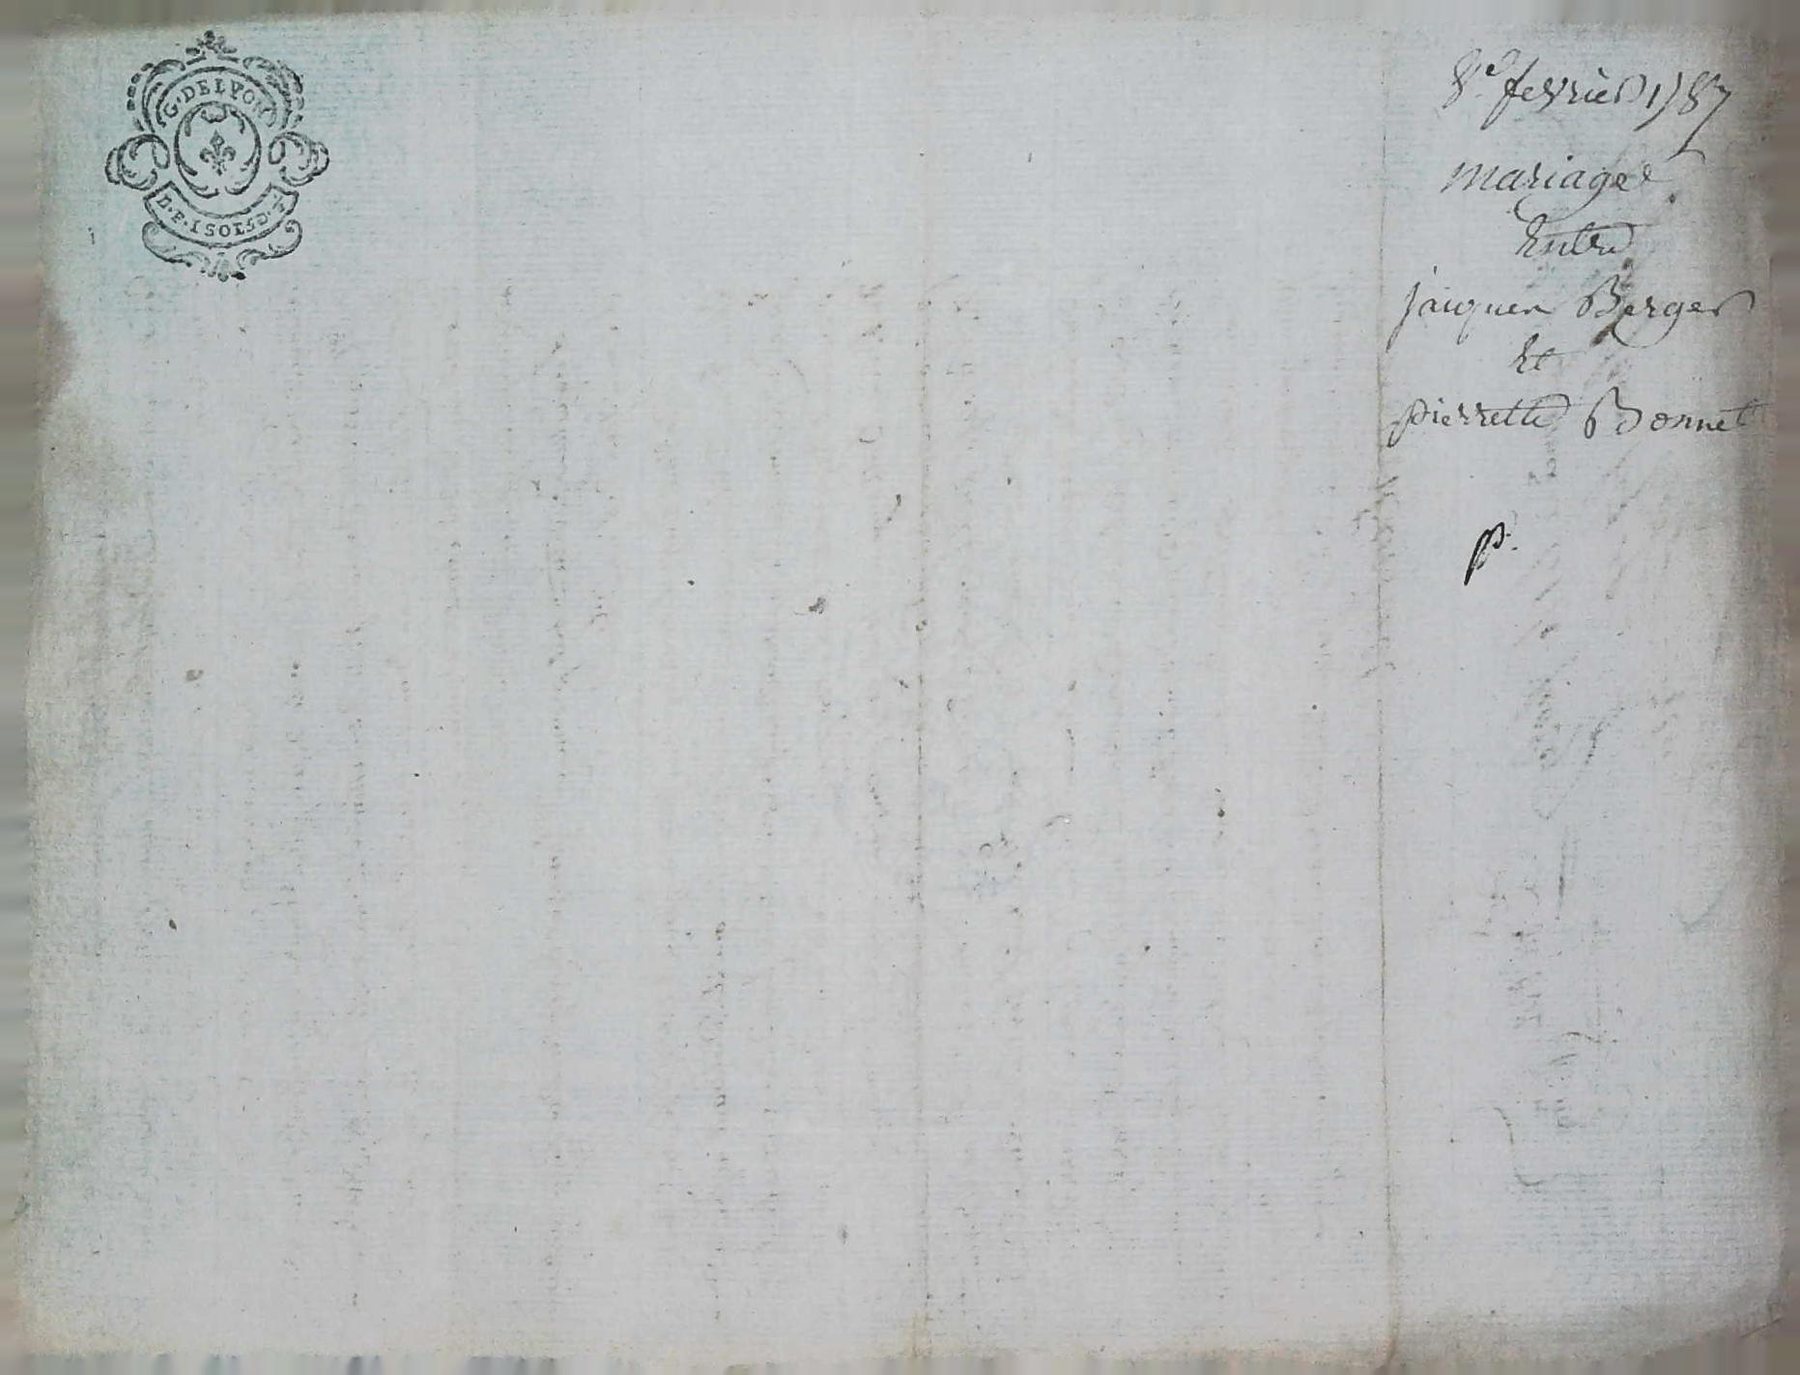 G. DE LYON
8e. fevrier 1787
mariage
Entre
jacques Berger
Et
pierrette Bonnet
p.